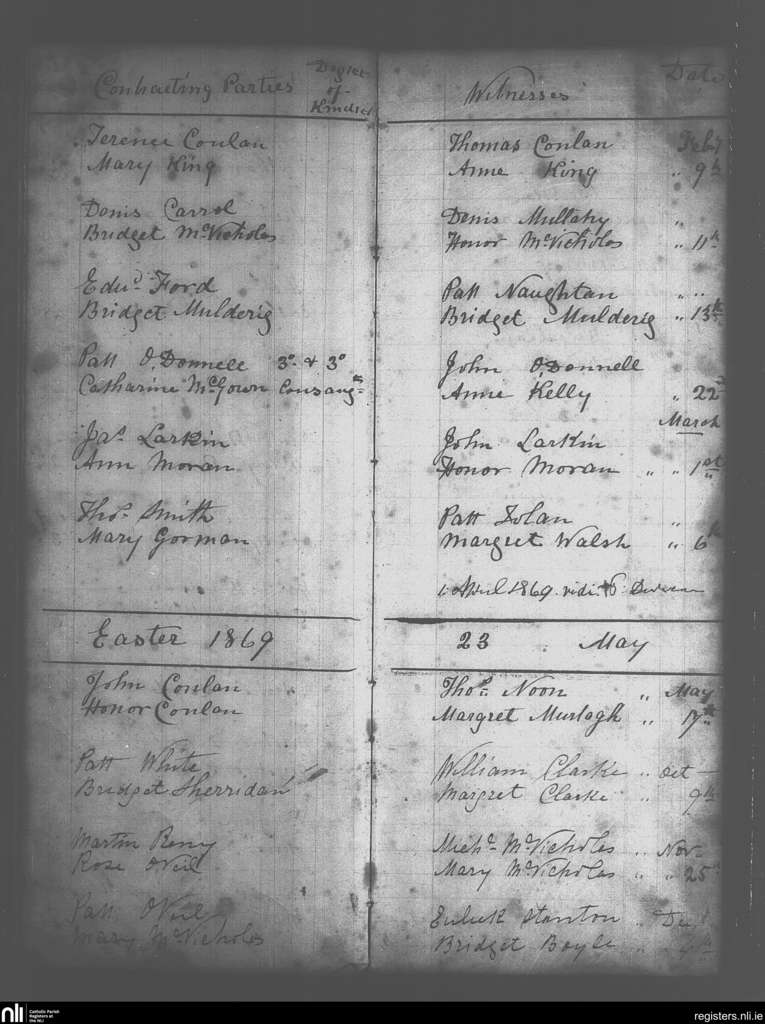 Contracting Parties Degree of Kindred Witnesses Date
Terence Conlan Thomas Conlan Feby
Mary King Anne King " 9th
Denis Carrol Denis Mullahy "
Bridget McNicholas Honor McNicholas " 11th
Edwd Ford Patt Naughtan " "
Bridget Mulderig Bridget Mulderig " 13th
Patt O,Donnell 3o & 3o John O,Donnell
Catharine McGown Consangn Anne Kelly " 22nd
March
Jas Larkin John Larkin
Ann Moran Honor Moran " " 1st
Thos Smith Patt Dolan "
Mary Gorman Margret Walsh " 6th
1. April 1869. vidi
Easter 1869 23 May
John Conlan Thos Noon " May
Honor Conlan Margret Murtagh " 17th
Patt White William Clarke " Oct
Bridget Sherridan Margret Clarke " 9th
Martin Reny Michl McNicholas " Nov
Rose ONeil Mary McNicholas " " 25
Patt ONeil Stanton "
Mary McNicholas Bridget Boyle "
nli Catholic Parish Registers at the NLI registers.nli.ie